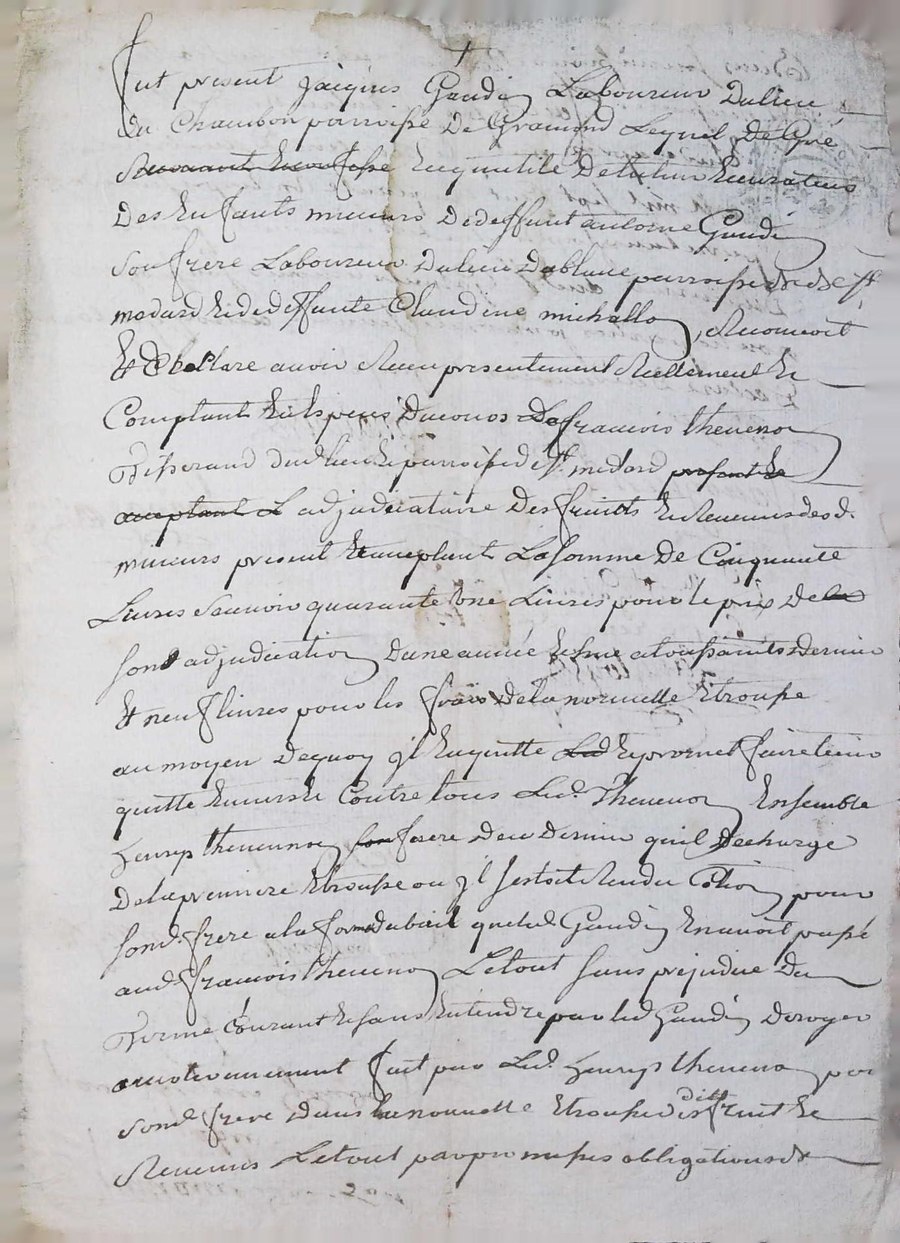 +
fut present jacques Gaudin Laboureur Dulieu
du Chambon parroisse De Gramond Lequel De Gré
Enquallité De tuteur Ecurateur
Des Enfants mineurs De deffunt antoine Gaudin
Son frere Laboureur Dulieu parroisse de St
medard Et de deffunte Claudine michallon, Reconnoit
Et Declare avoir Receu presentement Reellement Et
Comptant En Especes Ducours De francois thevenon
Tisserand dud. lieu Et parroisse de St medard present Et
acceptant L adjudicataire Des fruitts Et Revenus desd.
mineurs present Et acceptant La somme De Cinquante
Livres Scavoir quarante une Livres pour le prix De la
son adjudication Dune année Echue a toussaints Dernier
Et neuf livres pour les frais De la nouvelle Etrousse
au moyen Dequoy jl En quitte Led. Et promet faire tenir
quitte Envers Et Contre tous Led. Thevenon Ensemble
henrys thevenon son frere De ce Dernier quil Decharge
De la premiere Etrousse ou jl sestoit Rendu Caution pour
sond. frere a la forme du bail queled. Gaudin En avoit passé
aud. francois thevenon Letout sans prejudice Du
Terme Courant Et sans Entendre par led. Gaudin Deroger
au fait par Led. henrys thevenon pour
sond. frere Dans La nouvelle Etrousse desditts fruits Et
Revenus Letout par promesses obligations &